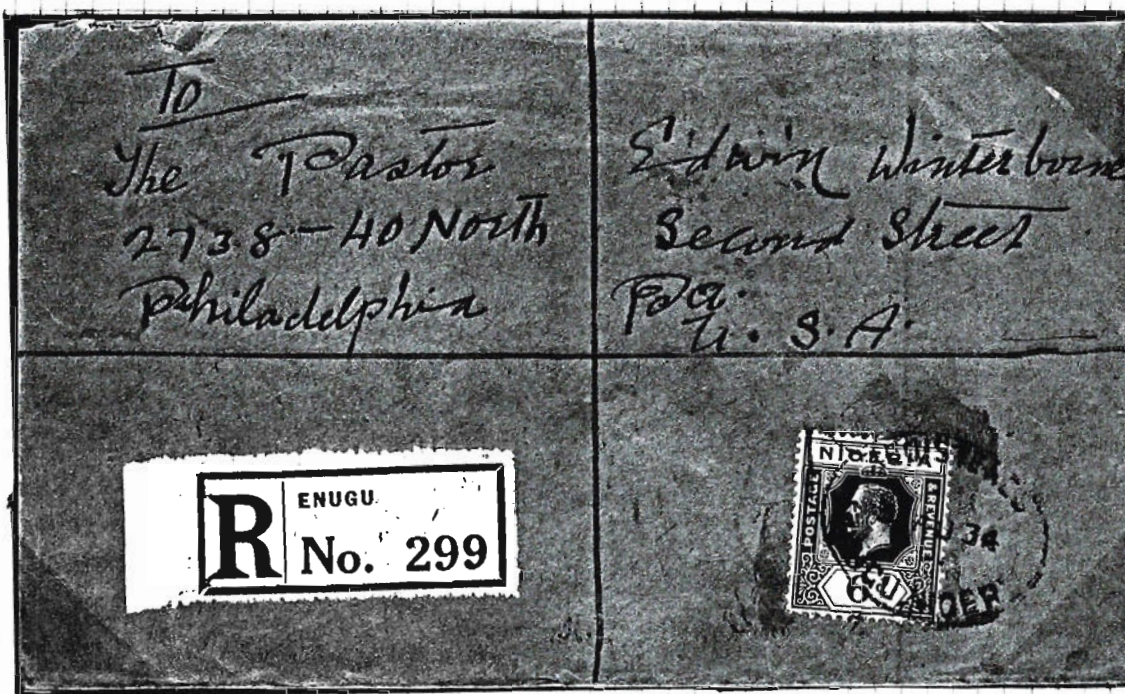 To
The Pastor Edwin Winterborne
2738-40 North Second Street
Philadelphia Pa.
U. S. A.
R
ENUGU
No. 299
NIGERIA
POSTAGE
& REVENUE
34